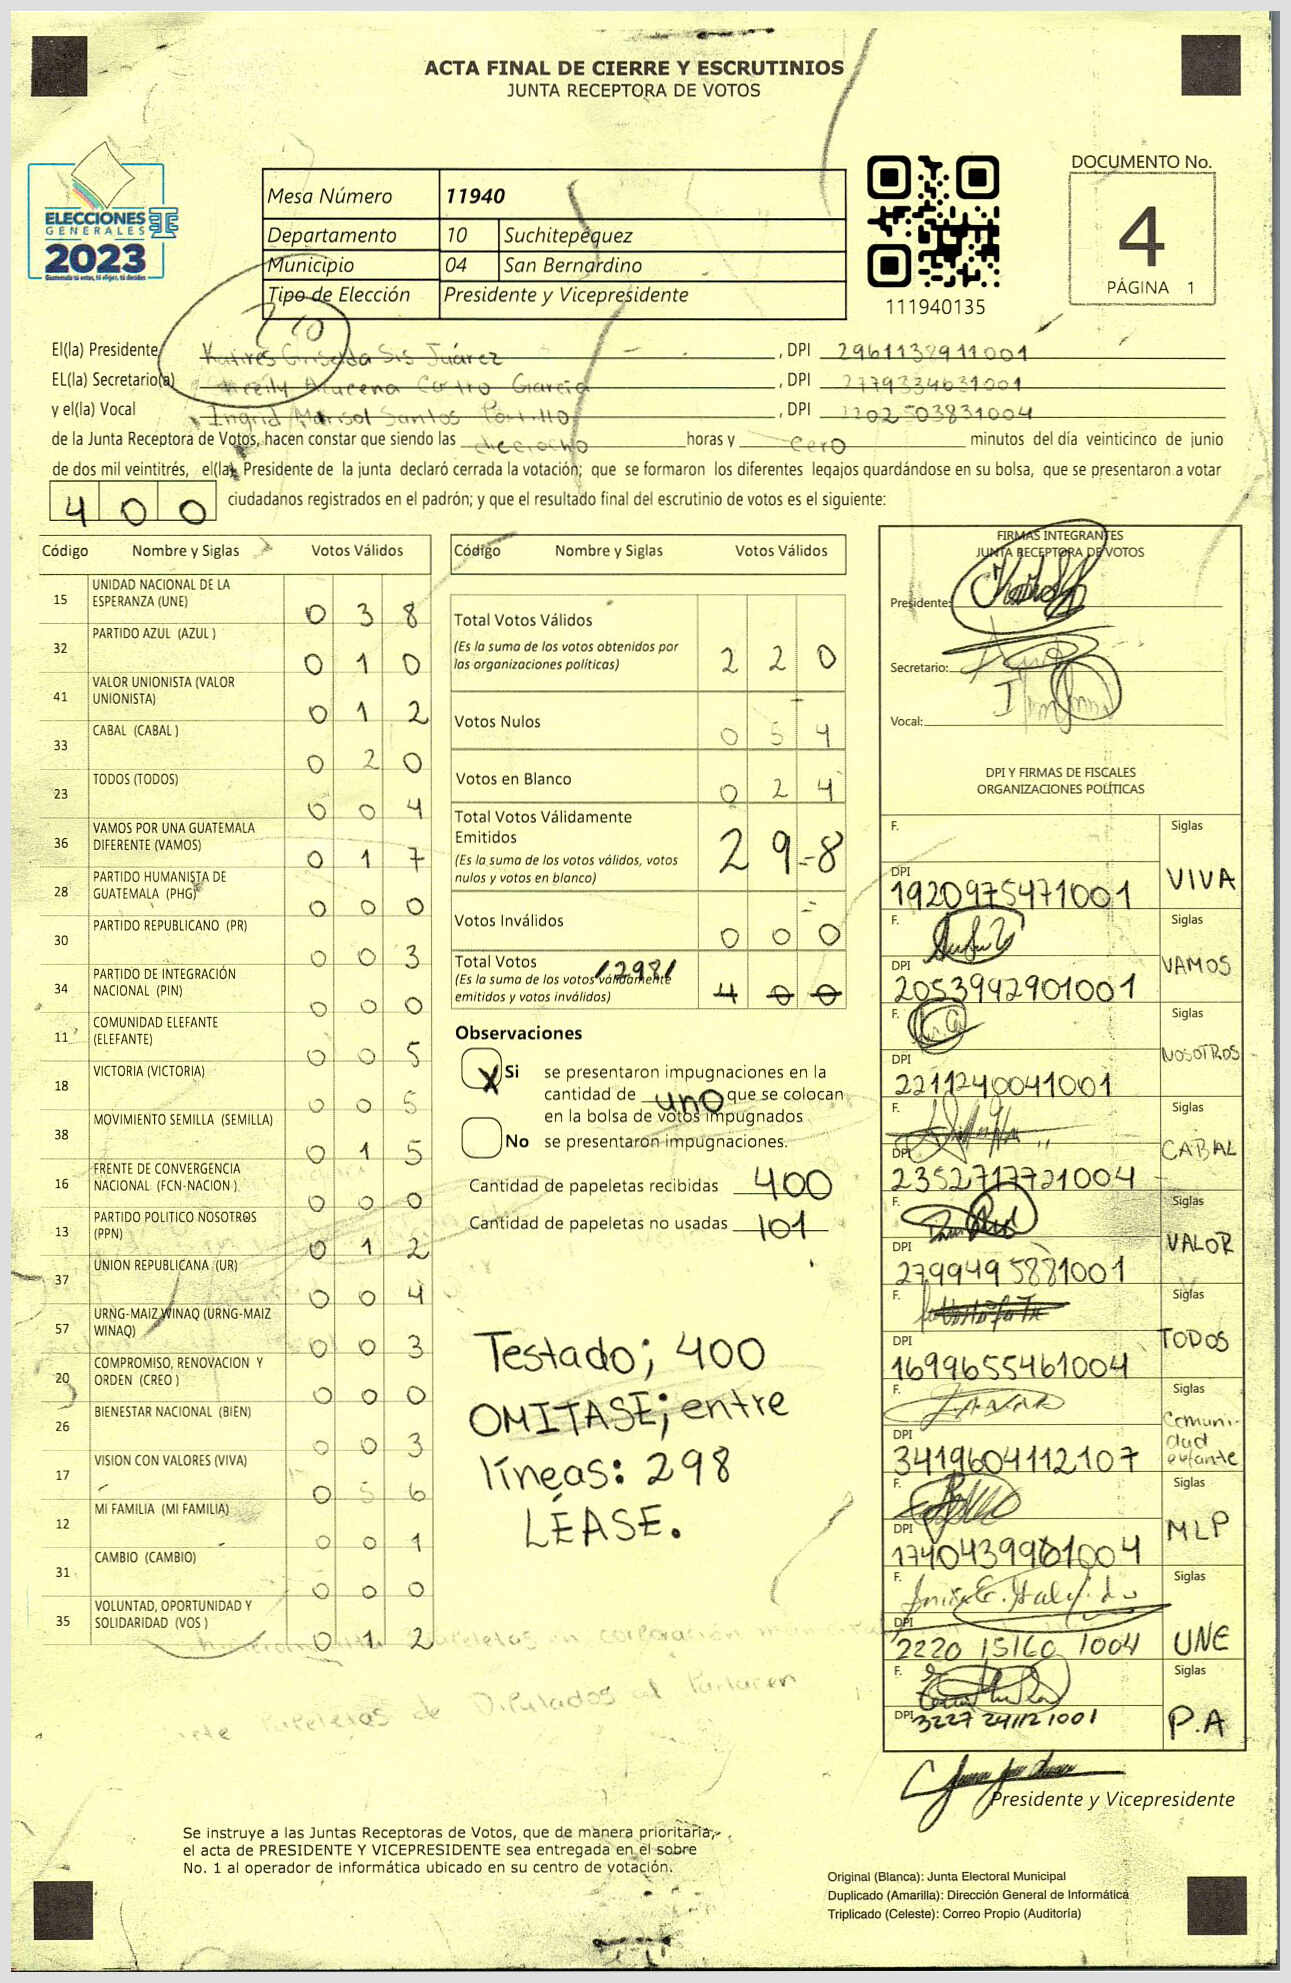 ACTA FINAL DE CIERRE Y ESCRUTINIOS
JUNTA RECEPTORA DE VOTOS
ELECCIONES
GENERALES
2023
Mesa Número 11940
Departamento 10 Suchitepequez
Municipio 04 San Bernardino
Tipo de Elección Presidente y Vicepresidente
111940135
DOCUMENTO No.
4
PÁGINA 1
El(la) Presidente Sis Juárez , DPI 2961138911001
EL(la) Secretario(a) Castro García , DPI 2779334631001
y el(la) Vocal Ingrid Marisol Santos Portillo , DPI 2202503831004
de la Junta Receptora de Votos, hacen constar que siendo las dieciocho horas y cero minutos del día veinticinco de junio
de dos mil veintitrés, el(la) Presidente de la junta declaró cerrada la votación; que se formaron los diferentes legajos guardándose en su bolsa, que se presentaron a votar
400 ciudadanos registrados en el padrón; y que el resultado final del escrutinio de votos es el siguiente:
Código Nombre y Siglas Votos Válidos
15 UNIDAD NACIONAL DE LA ESPERANZA (UNE) 038
32 PARTIDO AZUL (AZUL ) 010
41 VALOR UNIONISTA (VALOR UNIONISTA) 012
33 CABAL (CABAL ) 020
23 TODOS (TODOS) 004
36 VAMOS POR UNA GUATEMALA DIFERENTE (VAMOS) 017
28 PARTIDO HUMANISTA DE GUATEMALA (PHG) 000
30 PARTIDO REPUBLICANO (PR) 003
34 PARTIDO DE INTEGRACIÓN NACIONAL (PIN) 000
11 COMUNIDAD ELEFANTE (ELEFANTE) 005
18 VICTORIA (VICTORIA) 005
38 MOVIMIENTO SEMILLA (SEMILLA) 015
16 FRENTE DE CONVERGENCIA NACIONAL (FCN-NACION ) 000
13 PARTIDO POLITICO NOSOTROS (PPN) 012
37 UNION REPUBLICANA (UR) 004
57 URNG-MAIZ WINAQ (URNG-MAIZ WINAQ) 003
20 COMPROMISO, RENOVACION Y ORDEN (CREO ) 000
26 BIENESTAR NACIONAL (BIEN) 003
17 VISION CON VALORES (VIVA) 056
12 MI FAMILIA (MI FAMILIA) 001
31 CAMBIO (CAMBIO) 000
35 VOLUNTAD, OPORTUNIDAD Y SOLIDARIDAD (VOS ) 012
Código Nombre y Siglas Votos Válidos
Total Votos Válidos
(Es la suma de los votos obtenidos por
las organizaciones políticas) 220
Votos Nulos 054
Votos en Blanco 024
Total Votos Válidamente
Emitidos
(Es la suma de los votos válidos, votos
nulos y votos en blanco) 298
Votos Inválidos 000
Total Votos /298/
(Es la suma de los votos válidamente
emitidos y votos inválidos) 400
Observaciones
X Si se presentaron impugnaciones en la
cantidad de uno que se colocan
en la bolsa de votos impugnados
No se presentaron impugnaciones.
Cantidad de papeletas recibidas 400
Cantidad de papeletas no usadas 101
Testado; 400
OMITASE; entre
líneas: 298
LÉASE.
papeletas en corporación
papeletas de Diputados al Parlacen
FIRMAS INTEGRANTES
JUNTA RECEPTORA DE VOTOS
Presidente:
Secretario:
Vocal:
DPI Y FIRMAS DE FISCALES
ORGANIZACIONES POLÍTICAS
F. Siglas
DPI 1920975471001 VIVA
F. Siglas
DPI 2053942901001 VAMOS
F. Siglas
DPI 2211240041001 NOSOTROS
F. Siglas
DPI 2352717721004 CABAL
F. Siglas
DPI 2799495881001 VALOR
F. Siglas
DPI 1699655461004 TODOS
F. Siglas
DPI 3419604112107 Comunidad elefante
F. Siglas
DPI 1740439981004 MLP
F. Siglas
DPI 2220 15160 1004 UNE
F. Siglas
DPI 3227 24112 1001 P.A
Presidente y Vicepresidente
Se instruye a las Juntas Receptoras de Votos, que de manera prioritaria,
el acta de PRESIDENTE Y VICEPRESIDENTE sea entregada en el sobre
No. 1 al operador de informática ubicado en su centro de votación.
Original (Blanca): Junta Electoral Municipal
Duplicado (Amarilla): Dirección General de Informática
Triplicado (Celeste): Correo Propio (Auditoría)